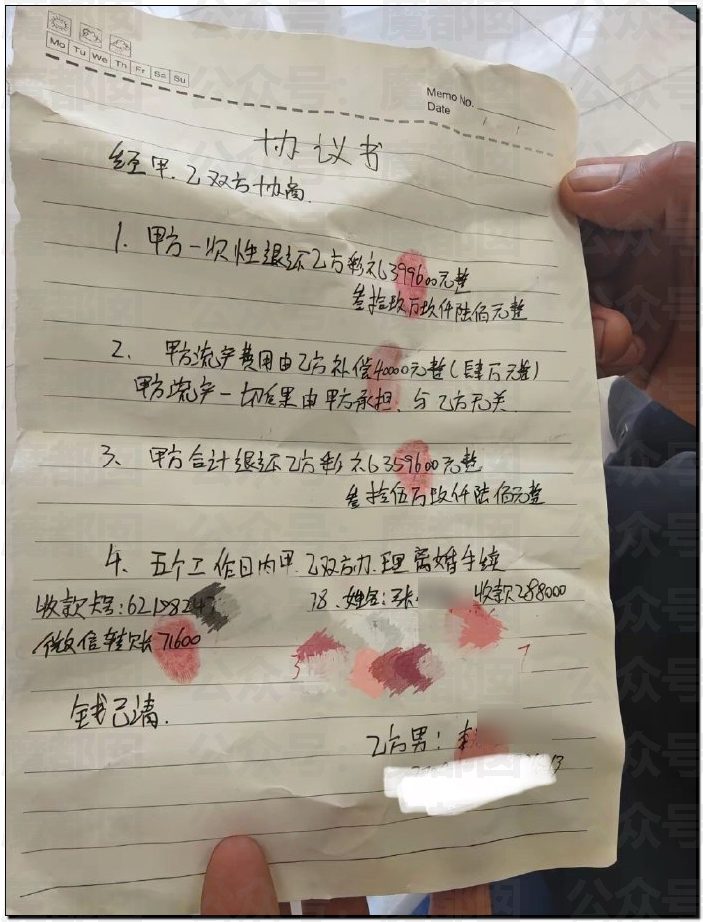 Mo Tu We Th Fr Sa Su
Memo No.
Date
协议书
经甲.乙双方协商.
1. 甲方一次性退还乙方彩礼399600元整
叁拾玖万玖仟陆佰元整
2. 甲方流产费用由乙方补偿40000元整(肆万元整)
甲方流产一切后果由甲方承担、与乙方无关
3、甲方合计退还乙方彩礼359600元整
叁拾伍万玖仟陆佰元整
4、五个工作日内甲.乙双方办理离婚手续
收款卡号:62 78.姓名:张 收款288000
微信转账71600
钱已清.
乙方男:李
魔都囡 公众号